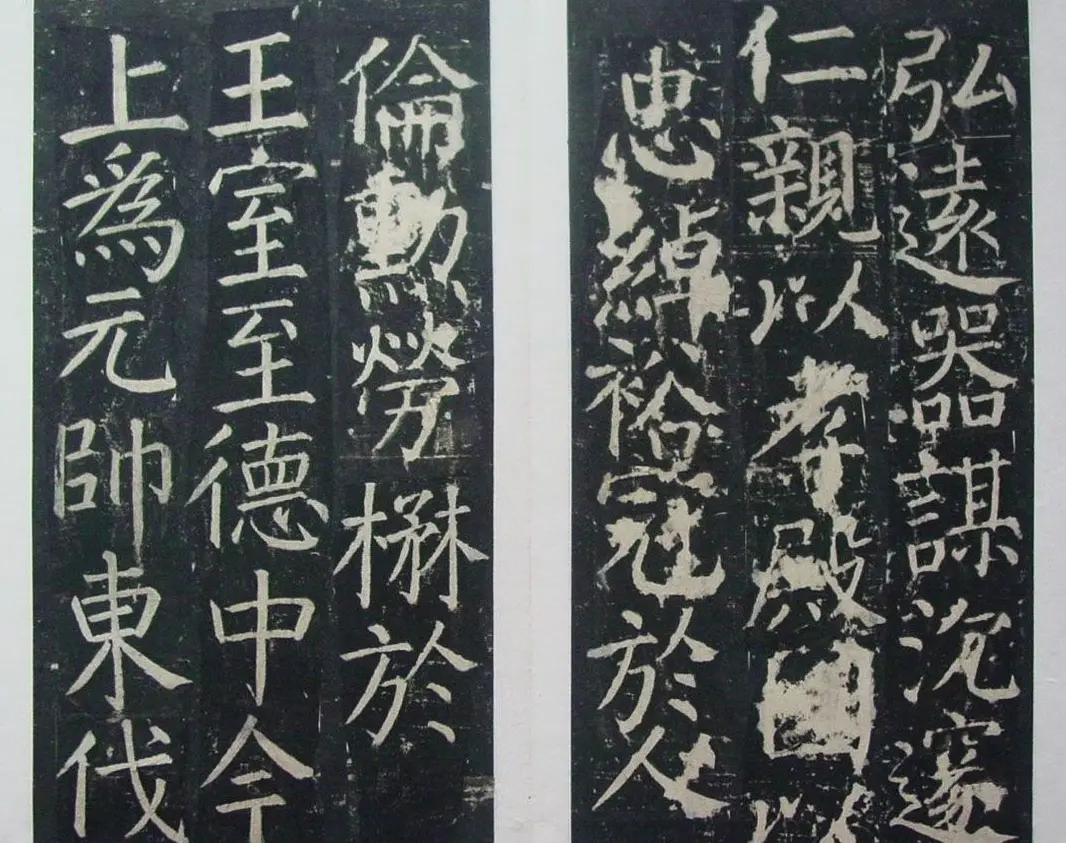 弘遠器謀沉邃
仁親以孝殿國以
忠綽裕冠於人
倫勳勞楙於
王室至德中今
上爲元帥東伐